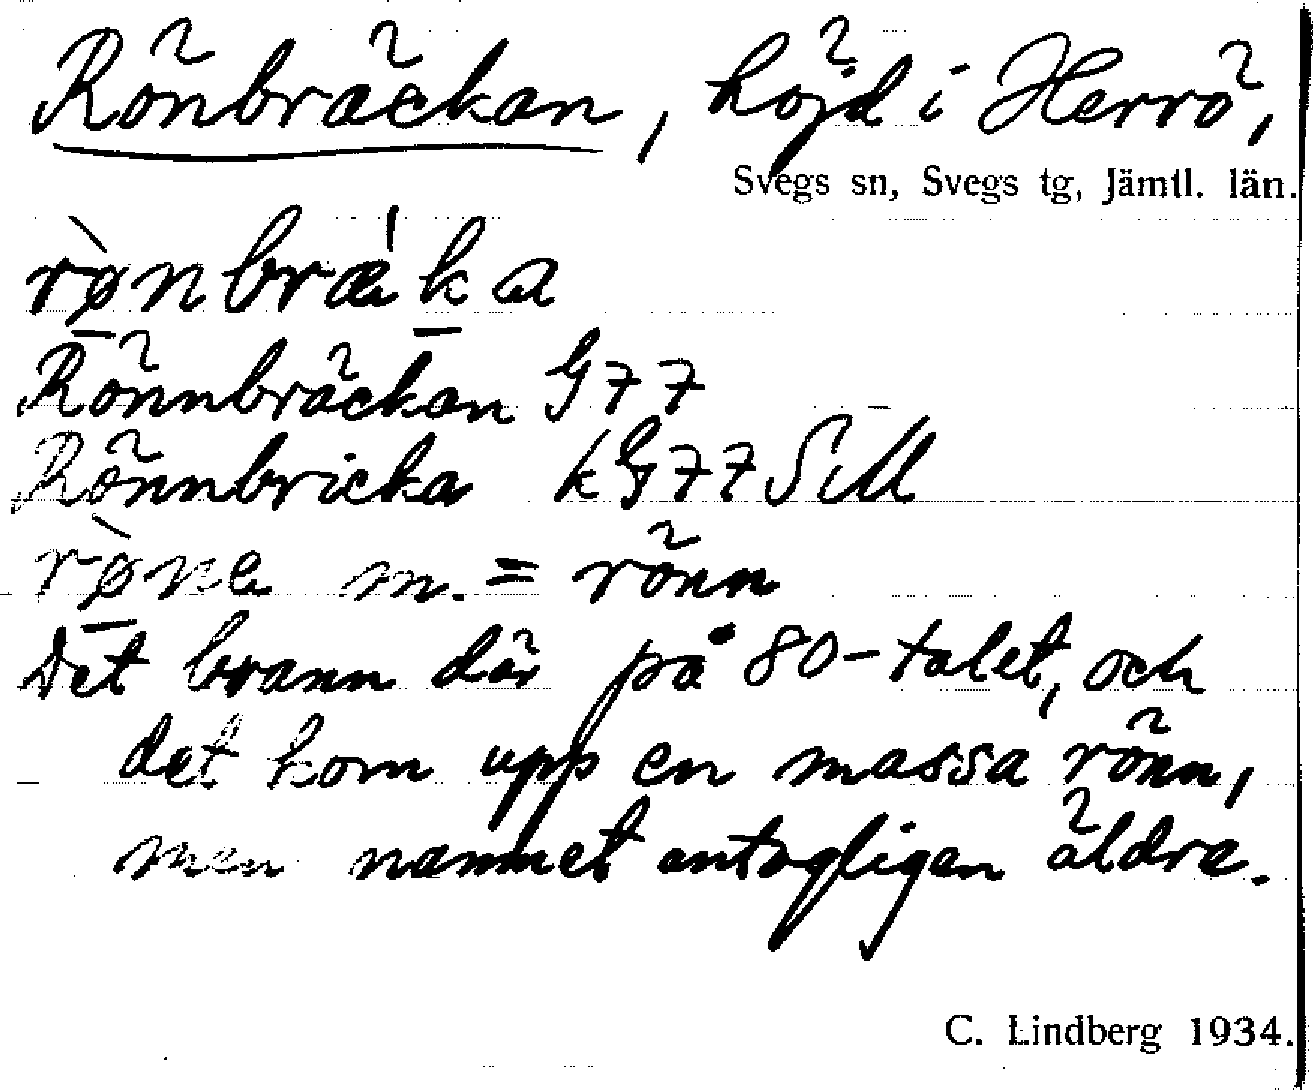 Rönbräckan, höjd i Herrö,
Svegs sn, Svegs tg, Jämtl. län.
rø̀nbræ̍ka
Rönnbräckan G77
Rönnbricka kG77SM
rø̀na m. = rönn
Det brann där på 80-talet, och
det kom upp en massa rönn,
men namnet antagligen äldre.
C. Lindberg 1934.